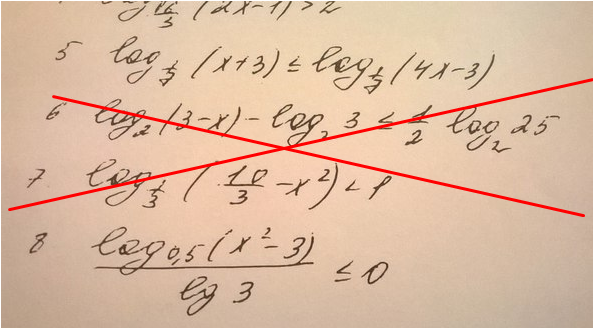 (2x-1)>2
5 log_{1/7} (x+3) ≤ log_{1/7} (4x-3)
6 log_2 (3-x) - log_2 3 ≤ 1/2 log_2 25
7 log_{1/3} (10/3 - x^2) <
8 log_{0,5} (x^2-3) / lg 3 ≤ 0